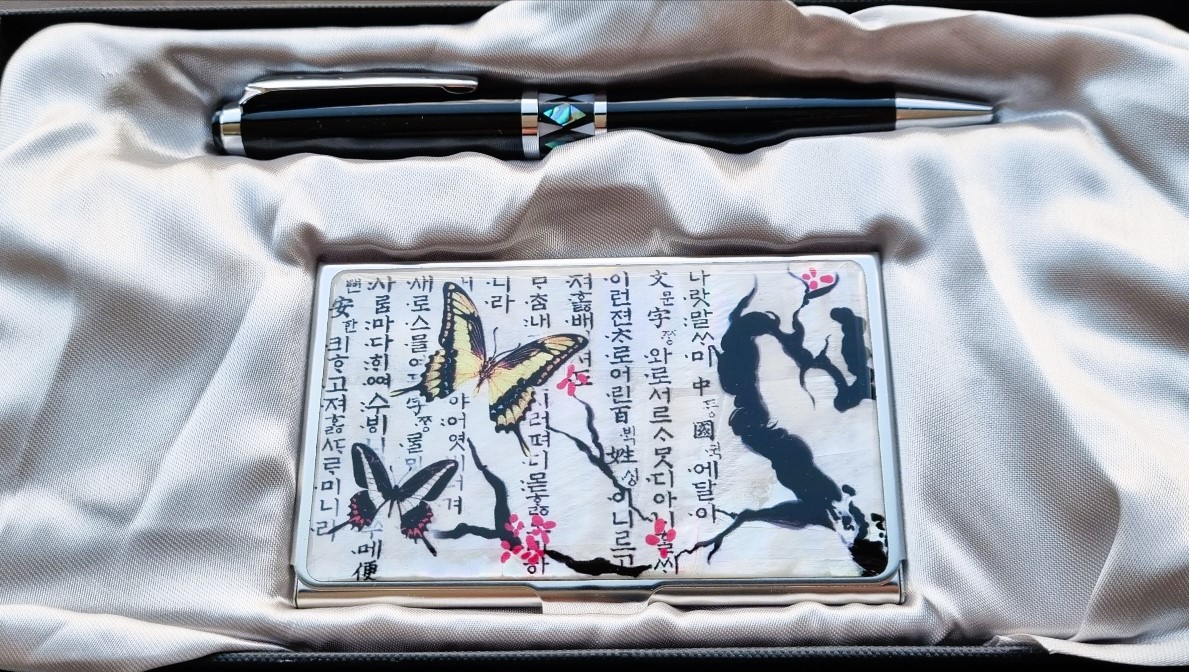 나랏말ᄊᆞ미中듕國귁에달아
文문字ᄍᆞᆼ와로서르ᄉᆞᄆᆞᆺ디아니ᄒᆞᆯᄊᆡ
이런젼ᄎᆞ로어린百ᄇᆡᆨ姓셩이니르고
져ᄒᆞᇙ배 셔도
ᄆᆞᄎᆞᆷ내 시러펴디몯ᄒᆞᇙ 하
니라
야어엿 겨
새로스믈여 字ᄍᆞᆼᄅᆞᆯ
사ᄅᆞᆷ마다ᄒᆡᅇᅧ수ᄫᅵ 수메便
뼌安한킈ᄒᆞ고져ᄒᆞᇙᄯᆞᄅᆞ미니라